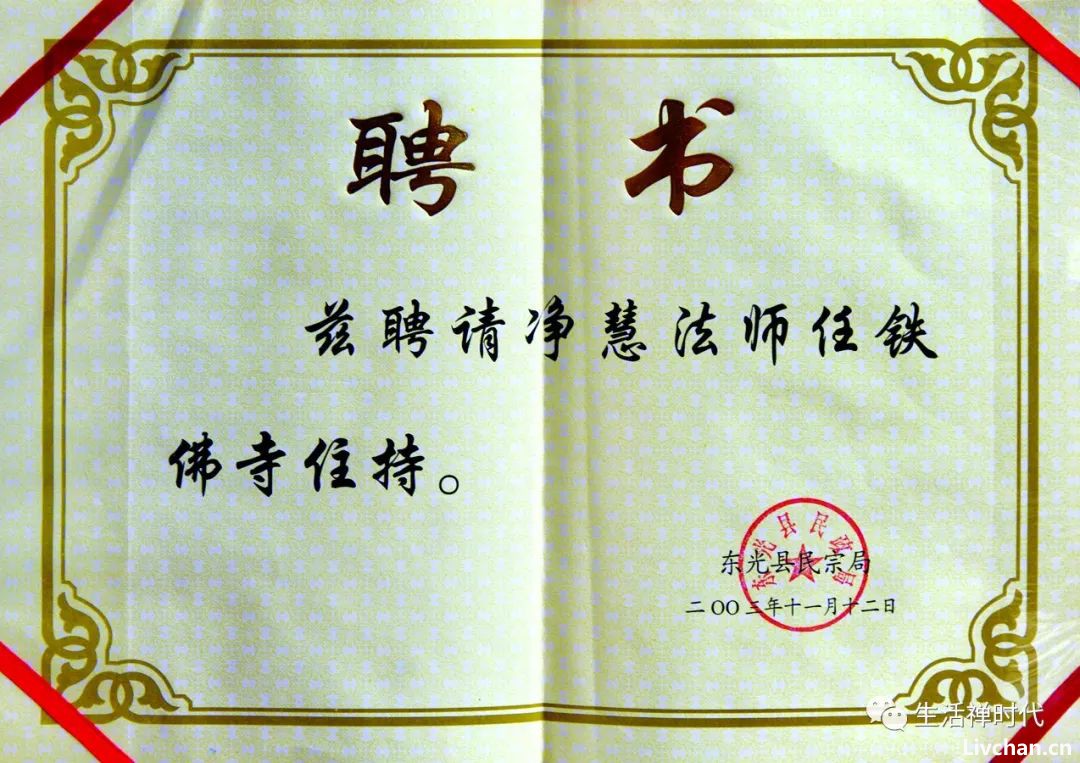 聘书
兹聘请净慧法师任铁
佛寺住持。
东光县民政局
东光县民宗局
二〇〇三年十一月十二日
生活禅时代
Livchan.cn